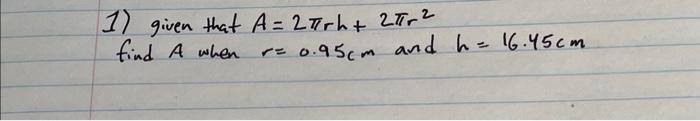 1) given that A = 2πrh + 2πr²
find A when r = 0.95cm and h = 16.45cm